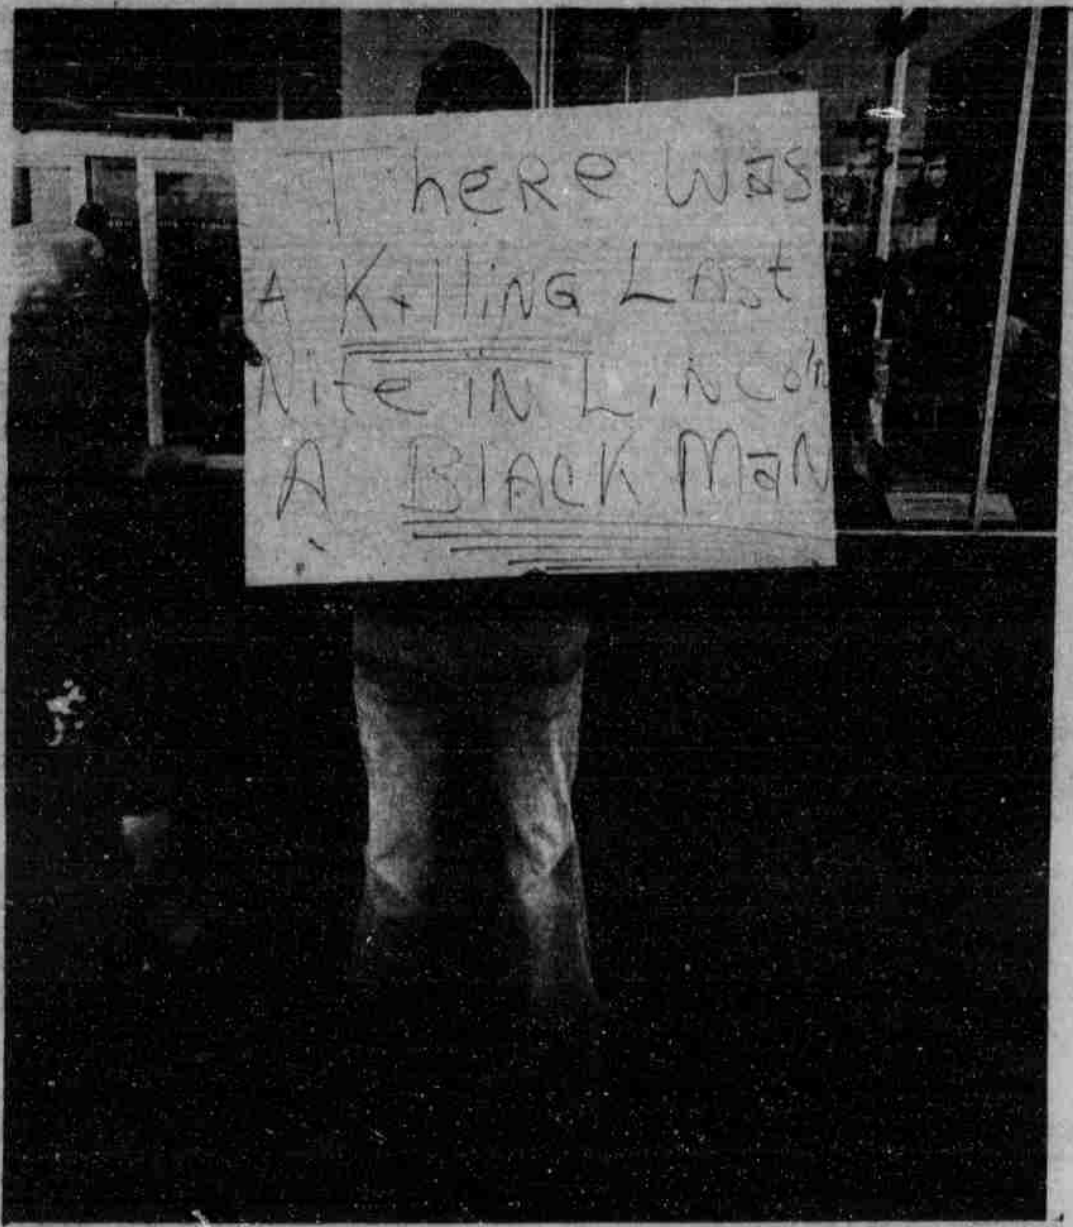 There was
A KilliNG LAst
Nite iN LiNcoln
A BlAcK MaN